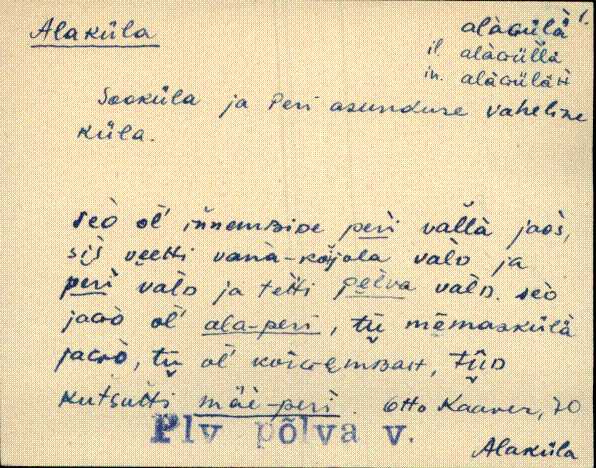 Alaküla
alàgülä 1.
il. alàgüllä
in. alàgüläh
Sooküla ja Peri asunduse vaheline
küla.
seò ol' innembide peri vallà jaòs,
sis veetti vanà-koijola vald ja
peri vald ja tetti põlva vald. seò
jago ol' ala-peri, tü mõmasküla
jago, tü ol' tüd
kutsutti mäe-peri. Otto Kaaver, 70
Plv põlva v.
Alaküla